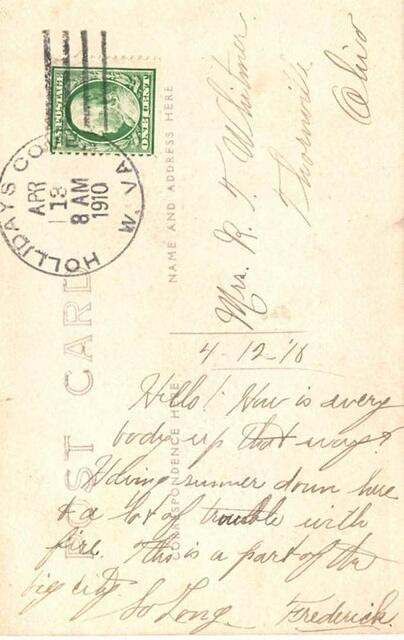 U.S. POSTAGE
ONE CENT
HOLLIDAYS CO
W. VA.
APR
13
8 AM
1910
POST CARD
NAME AND ADDRESS HERE
CORRESPONDENCE HERE
Mrs. R. F. Whitmer
Thornville
Ohio
4-12-'10
Hello! How is every
body up that way?
Having summer down here
& a lot of trouble with
fire. This is a part of the
big city.
So Long. Frederick.